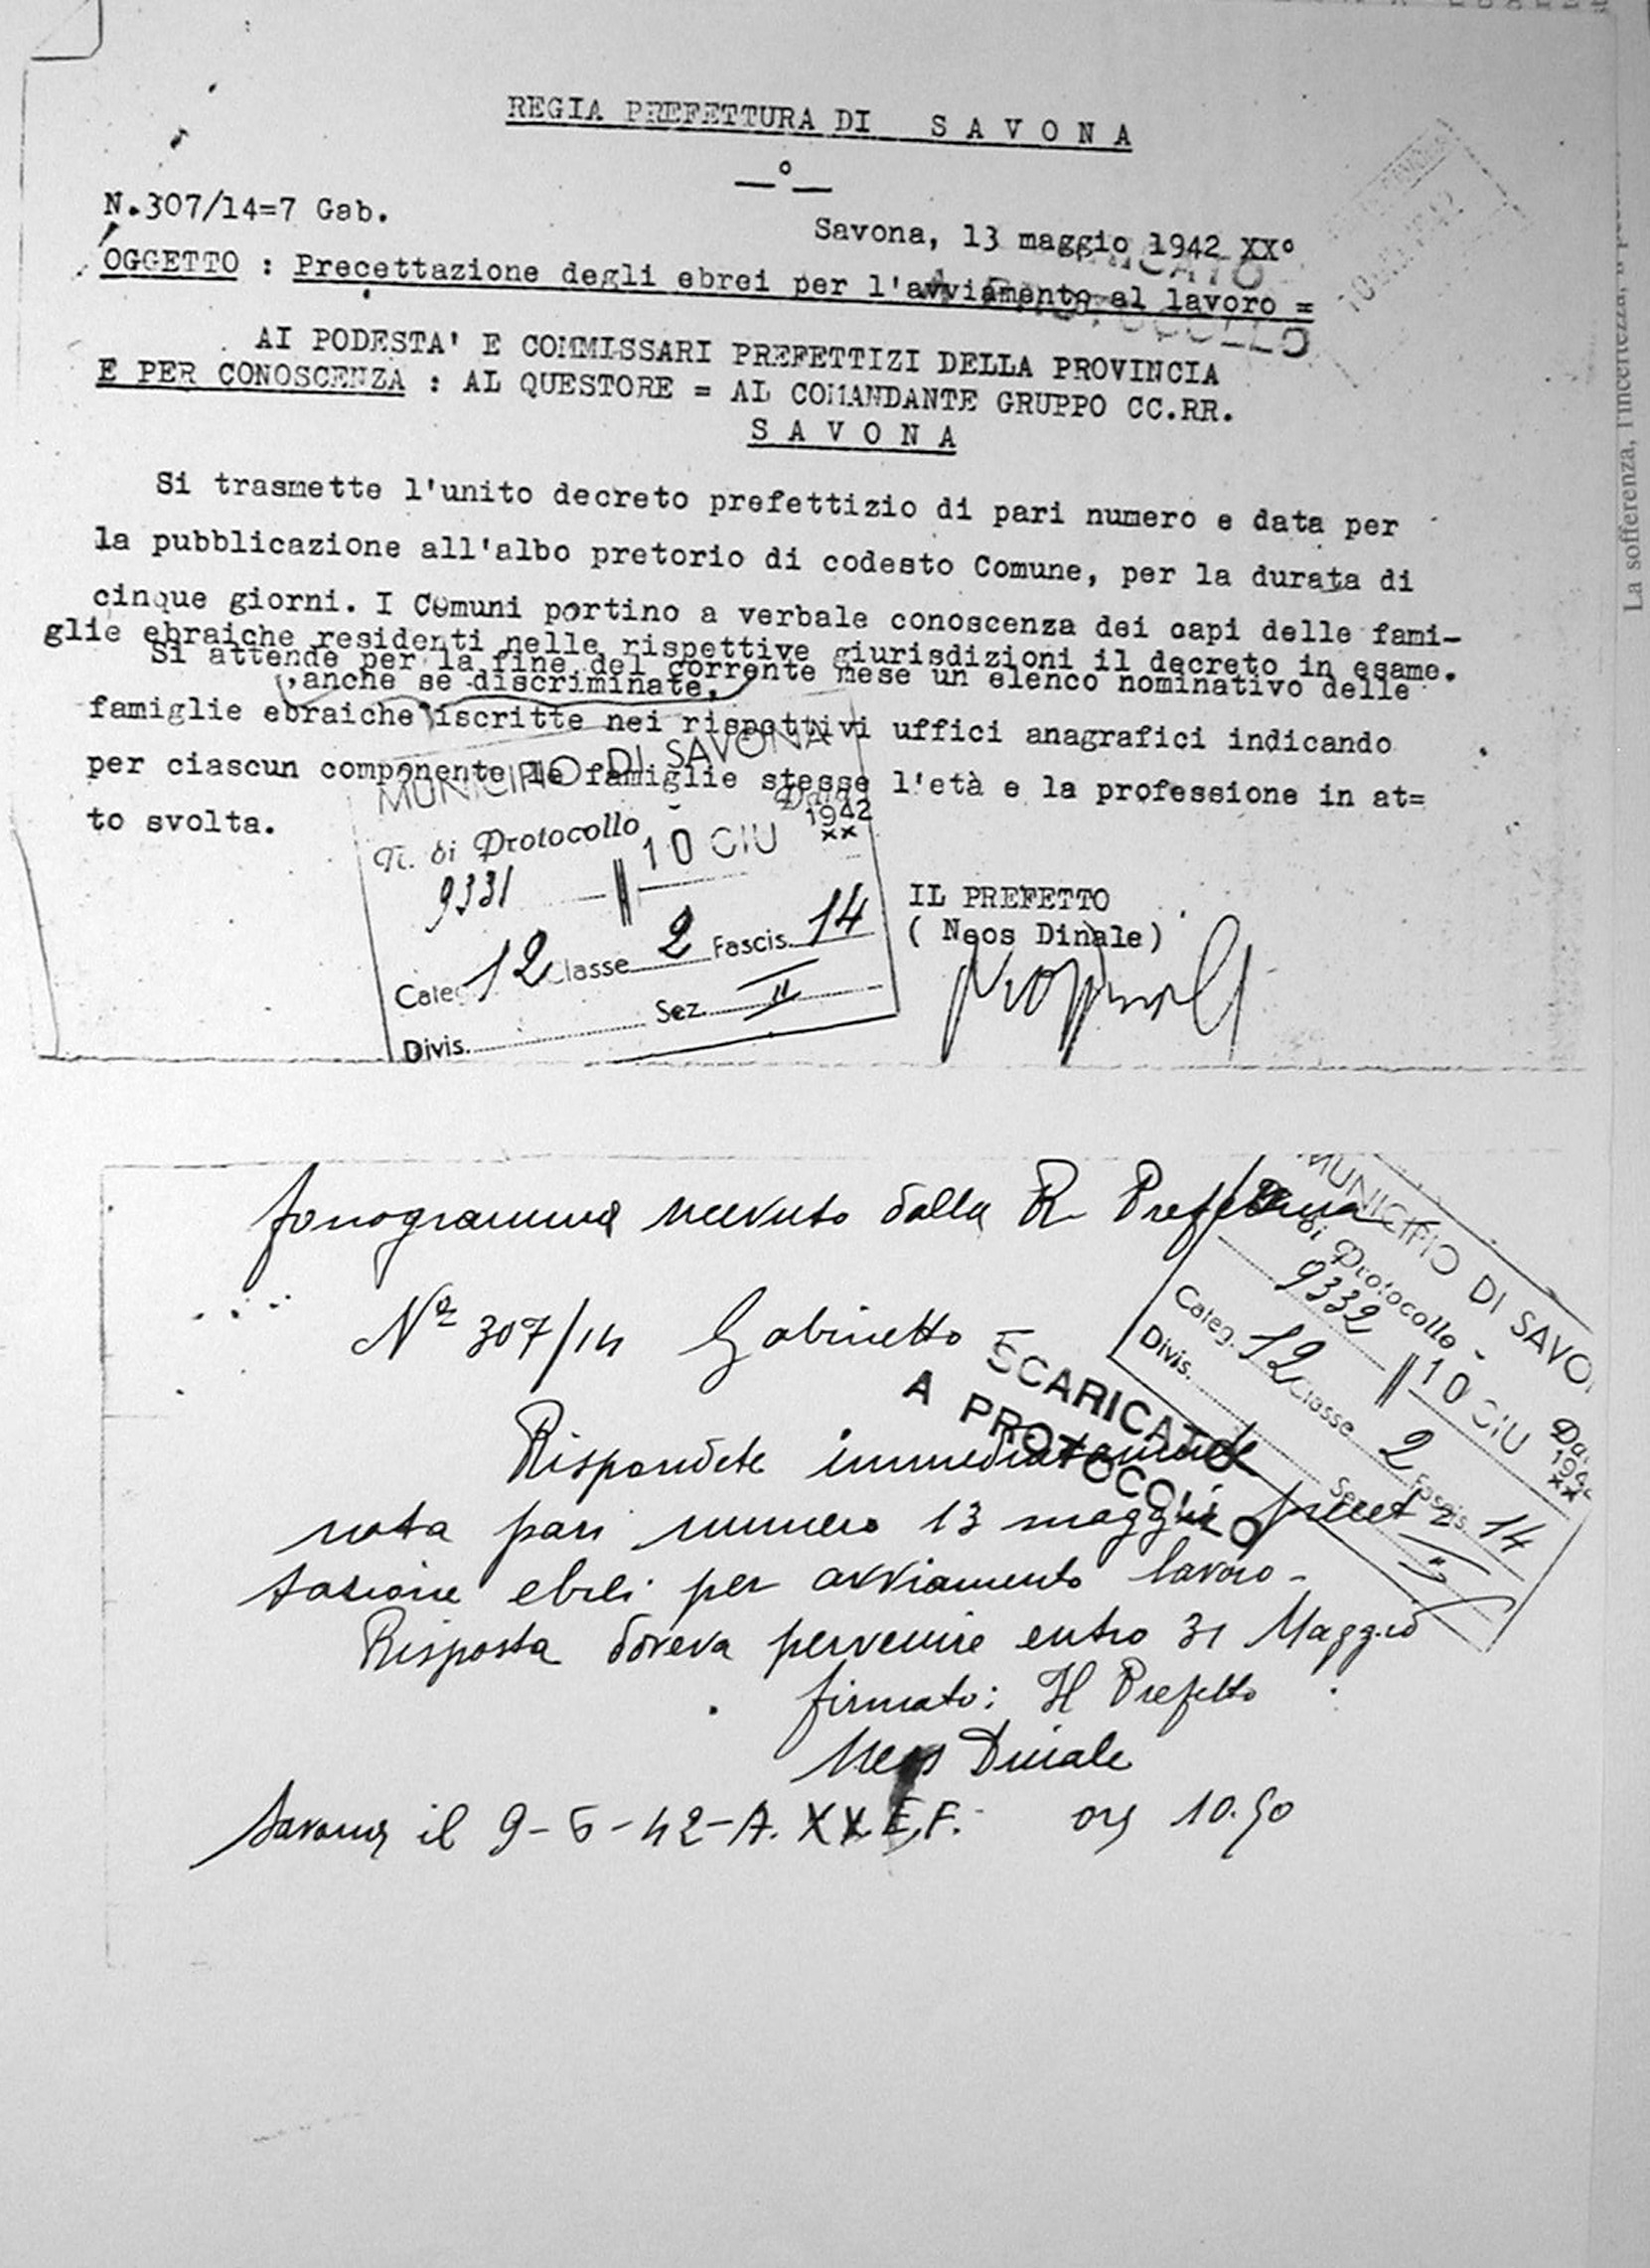 REGIA PREFETTURA DI S A V O N A
—°—
N.307/14=7 Gab.
Savona, 13 maggio 1942 XX°
OGGETTO : Precettazione degli ebrei per l'avviamento al lavoro =
AI PODESTA' E COMMISSARI PREFETTIZI DELLA PROVINCIA
E PER CONOSCENZA : AL QUESTORE = AL COMANDANTE GRUPPO CC.RR.
S A V O N A
Si trasmette l'unito decreto prefettizio di pari numero e data per
la pubblicazione all'albo pretorio di codesto Comune, per la durata di
cinque giorni. I Comuni portino a verbale conoscenza dei capi delle fami-
glie ebraiche residenti nelle rispettive giurisdizioni il decreto in esame.
Si attende per la fine del corrente mese un elenco nominativo delle
, anche se discriminate,
famiglie ebraiche iscritte nei rispettivi uffici anagrafici indicando
per ciascun componente le famiglie stesse l'età e la professione in at=
to svolta.
MUNICIPIO DI SAVONA
N. di Protocollo Data
9331 10 GIU 1942 XX
Categ. 12 Classe 2 Fascis. 14
Divis. Sez. II
IL PREFETTO
( Neos Dinale )
La sofferenza, l'incertezza,
fonogramma ricevuto dalla R Prefettura
N° 307/14 Gabinetto
SCARICATO
A PROTOCOLLO
MUNICIPIO DI SAVO
di Protocollo Da
9332 10 GIU 194 XX
Categ. 12 Classe 2 Fascis 14
Divis. Sez. II
Rispondete immediatamente
nota pari numero 13 maggio precet
tazione ebrei per avviamento lavoro -
Risposta doveva pervenire entro 31 Maggio
firmato: Il Prefetto
Neos Dinale
Savona il 9-6-42-A. XX E.F. ore 10.50